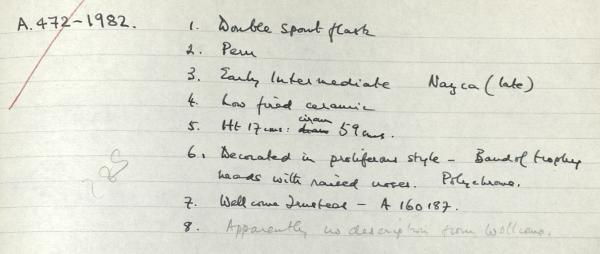 A.472-1982. 1. Double spout flask
2. Peru
3. Early Intermediate Nazca (late)
4. Low fired ceramic
5. Ht 17 cms: circum 59 cms.
6. Decorated in proliferous style - Band of trophy
heads with raised noses. Polychrome.
7. Wellcome Trustees - A 160187.
8. Apparently no description from Wellcome.